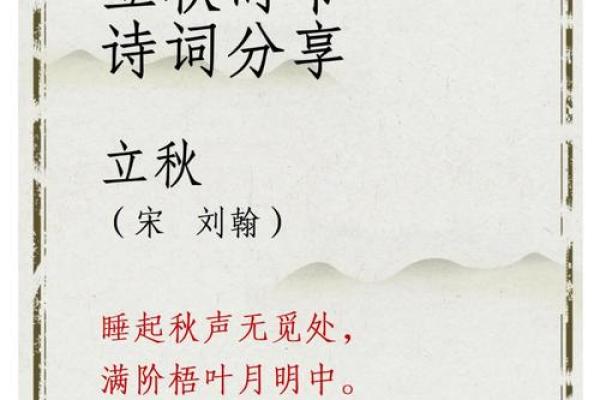 诗词分享
立秋
（宋 刘翰）
睡起秋声无觅处，
满阶梧叶月明中。